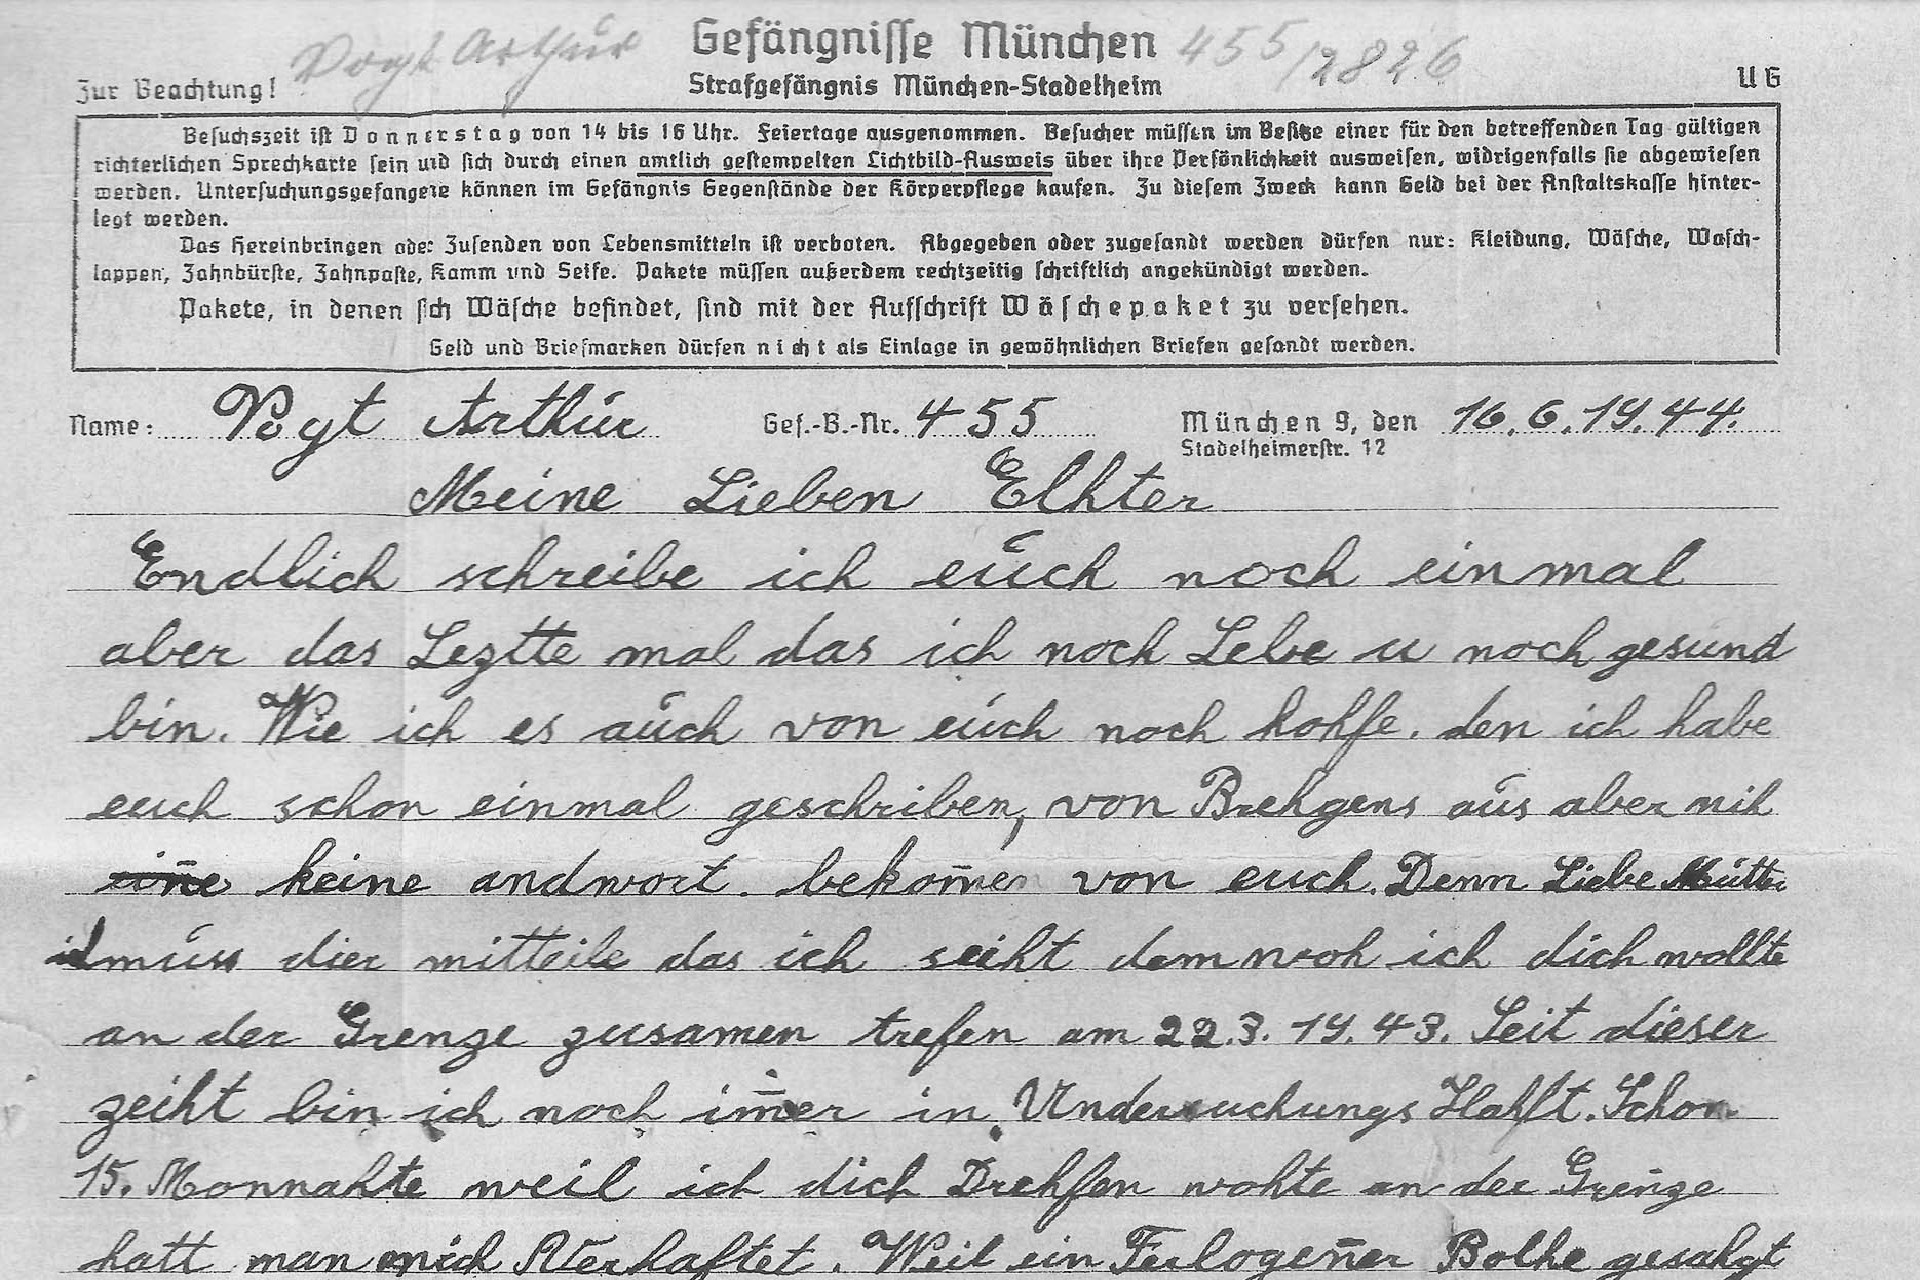 Vogt Arthur Gefängnisse München 455/2826
Zur Beachtung! Strafgefängnis München-Stadelheim U G
Besuchszeit ist Donnerstag von 14 bis 16 Uhr. Feiertage ausgenommen. Besucher müssen im Besitze einer für den betreffenden Tag gültigen
richterlichen Sprechkarte sein und sich durch einen amtlich gestempelten Lichtbild-Ausweis über ihre Persönlichkeit ausweisen, widrigenfalls sie abgewiesen
werden. Untersuchungsgefangene können im Gefängnis Gegenstände der Körperpflege kaufen. Zu diesem Zweck kann Geld bei der Anstaltskasse hinter-
legt werden.
Das Hereinbringen oder Zusenden von Lebensmitteln ist verboten. Abgegeben oder zugesandt werden dürfen nur: Kleidung, Wäsche, Wasch-
lappen, Zahnbürste, Zahnpaste, Kamm und Seife. Pakete müssen außerdem rechtzeitig schriftlich angekündigt werden.
Pakete, in denen sich Wäsche befindet, sind mit der Aufschrift Wäschepaket zu versehen.
Geld und Briefmarken dürfen nicht als Einlage in gewöhnlichen Briefen gesandt werden.
Name: Vogt Arthur Gef.-B.-Nr. 455 München 9, den 16.6.1944.
Stadelheimerstr. 12
Meine Lieben Elhter
Endlich schreibe ich euch noch einmal
aber das Leztte mal das ich noch Lebe u noch gesund
bin. Wie ich es auch von euch noch hohfe. den ich habe
euch schon einmal geschriben, von Brehgens aus aber nih
eine keine andwort. bekom̄en von euch. Denn Liebe Mutter
ich muss dier mitteile das ich seiht dem woh ich dich wollte
an der Grenze zusamen trefen am 22.3.1943. Seit dieser
zeiht bin ich noch im̄er in Undersuchungs Hahft. Schon
15. Monnahte weil ich dich Drehfen wohte an der Grenze
hatt man mich Verhaftet. Weil ein Ferlogen̄er Bolhe gesahgt